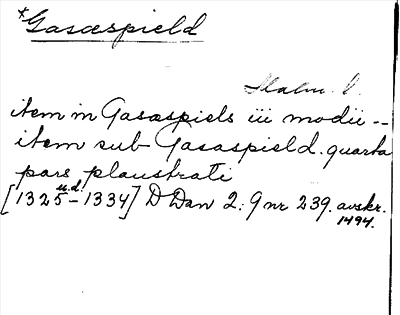 *Gasæspield
Malm. l.
item in Gasaspiels iii modii --
item sub Gasaspield. quarta
pars plaustrati
[1325 u.d. - 1334] D Dan 2: 9 nr 239. avskr.
1494.